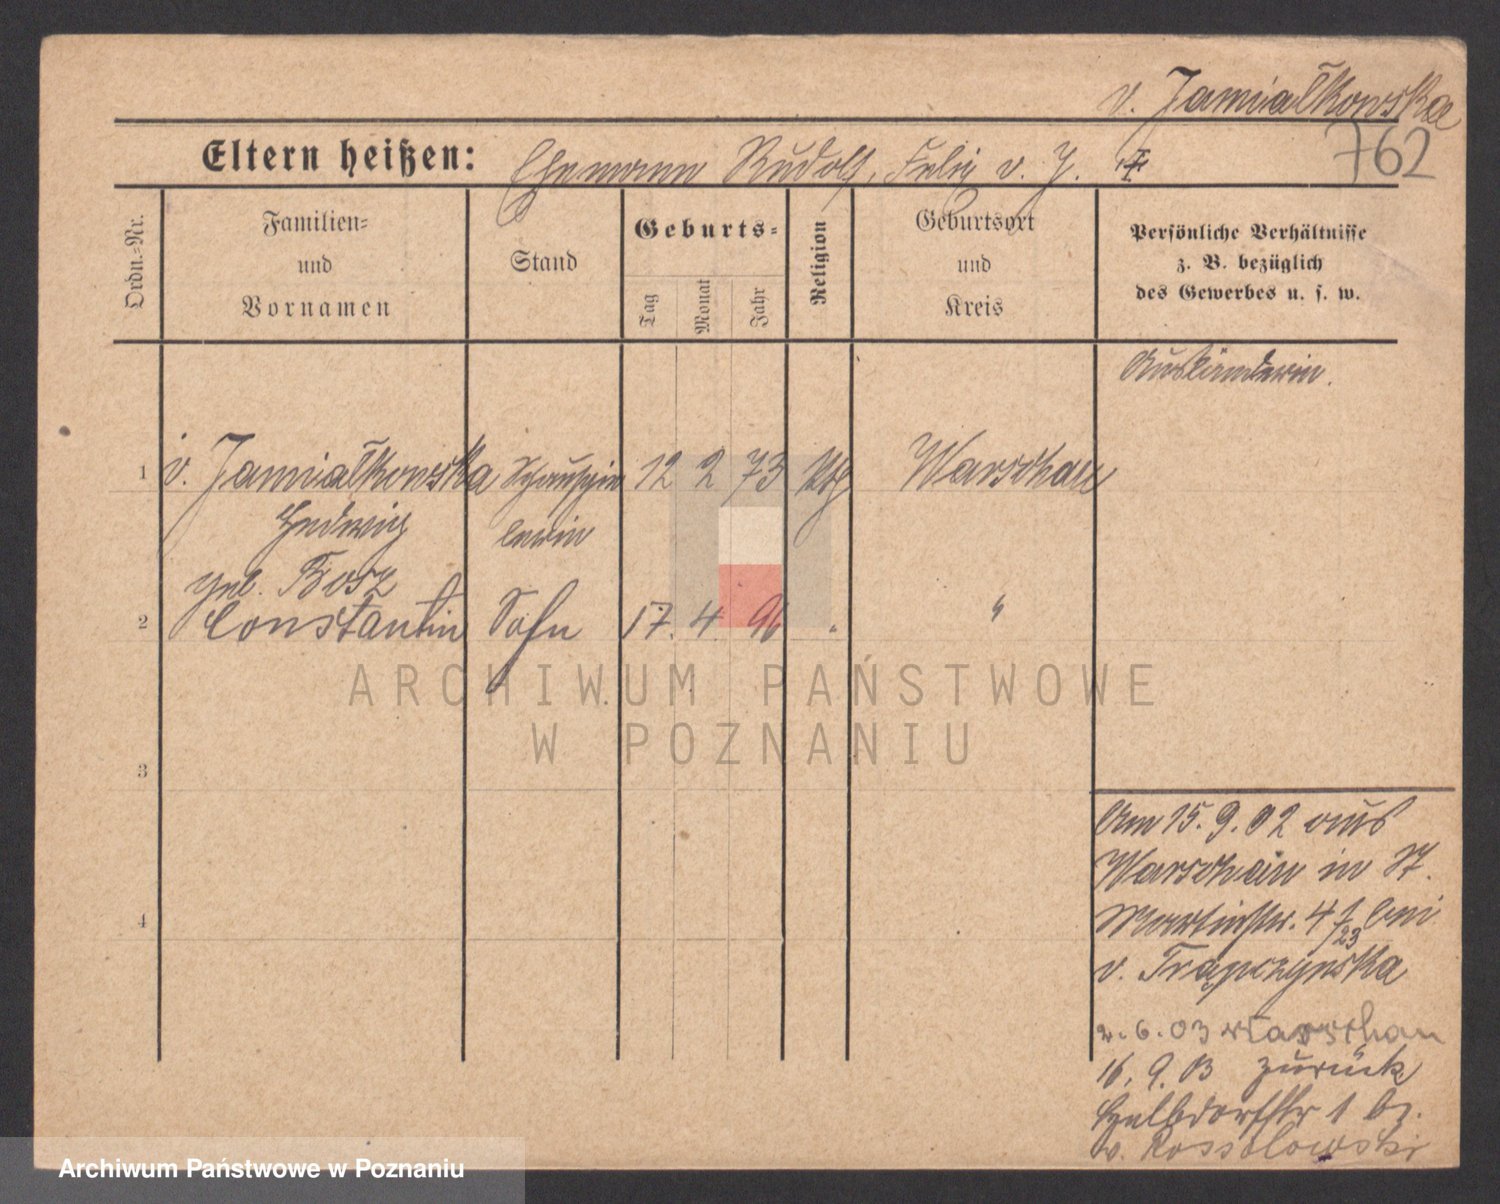 v. Jamiałkowska
762
Eltern heißen: Ehemann Rudolf, Felix v. J. ‡
Ordn.-Nr.
Familien-
und
Vornamen
Stand
Geburts-
Tag
Monat
Jahr
Religion
Geburtsort
und
Kreis
Persönliche Verhältnisse
z. B. bezüglich
des Gewerbes u. s. w.
Ausländerin.
1 v. Jamiałkowska Schauspie 12 2 73 kth Warschau
Hedwig lerin
geb. Bosz
2 Constantin Sohn 17. 4. 96 " "
3
4
Am 15. 9. 02 aus
Warschau in St.
Martinstr. 41/23 bei
v. Trąpczynska
2. 6. 03 Warschau
16. 9. 03 zurück
Halbdorfstr 1 bei
v. Rossolowski
ARCHIWUM PAŃSTWOWE
W POZNANIU
Archiwum Państwowe w Poznaniu